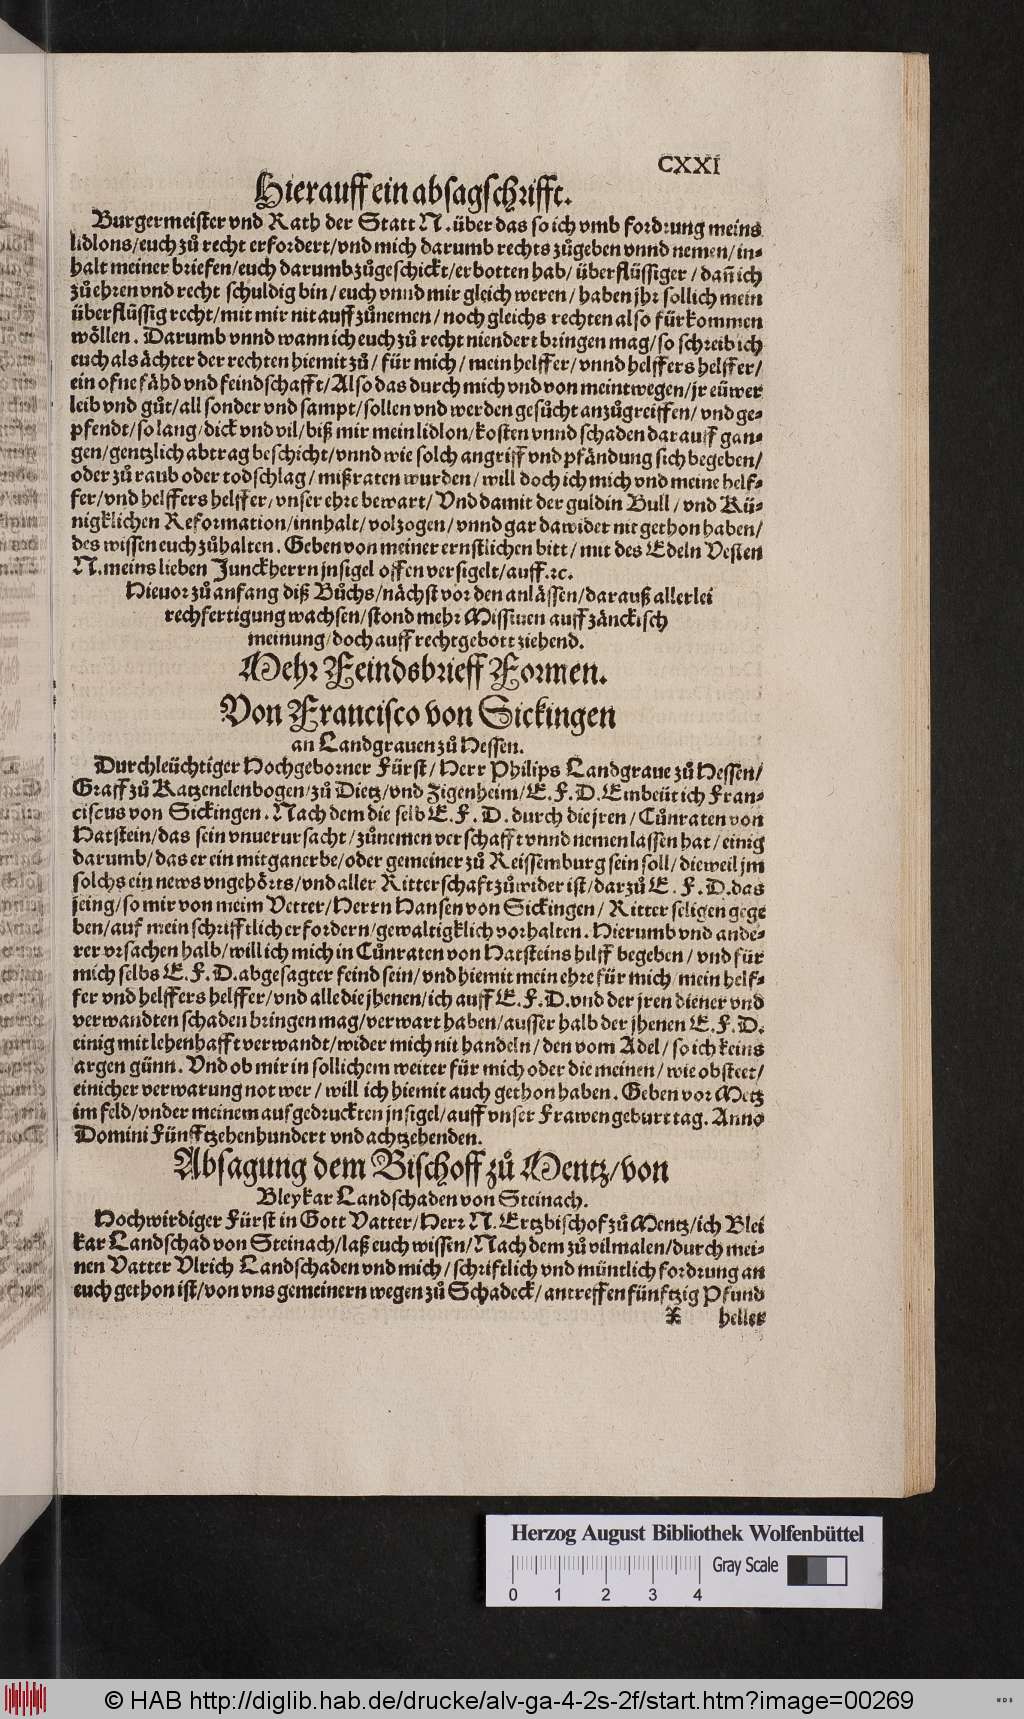 CXXI
Hierauff ein absagschrifft.
Burgermeister vnd Rath der Statt N. über das so ich vmb fordrung meins
lidlons/euch zů recht erfordert/vnd mich darumb rechts zůgeben vnnd nemen/in⸗
halt meiner briefen/euch darumb zůgeschickt/erbotten hab/überflüssiger/dañ ich
zů ehren vnd recht schuldig bin/euch vnnd mir gleich weren/haben jhr sollich mein
überflüssig recht/mit mir nit auff zůnemen/noch gleichs rechten also fürkommen
wöllen. Darumb vnnd wann ich euch zů recht niendert bringen mag/so schreib ich
euch als ächter der rechten hiemit zů/für mich/mein helffer/vnnd helffers helffer/
ein ofne fähd vnd feindschafft/Also das durch mich vnd von meint wegen/jr eüwer
leib vnd gůt/all sonder vnd sampt/sollen vnd werden gesůcht anzůgreiffen/vnd ge⸗
pfendt/so lang/dick vnd vil/biß mir mein lidlon/kosten vnnd schaden darauff gan⸗
gen/gentzlich abtrag beschicht/vnnd wie solch angriff vnd pfändung sich begeben/
oder zů raub oder todschlag/mißraten wurden/will doch ich mich vnd meine helf⸗
fer/vnd helffers helffer/vnser ehre bewart/Vnd damit der guldin Bull/vnd Kü⸗
nigklichen Reformation/innhalt/volzogen/vnnd gar dawider nit gethon haben/
des wissen euch zůhalten. Geben von meiner ernstlichen bitt/mit des Edeln Vesten
N. meins lieben Junckherrn jnsigel offen versigelt/auff.ꝛc.
Hieuor zů anfang diß Bůchs/nächst vor den anlässen/darauß allerlei
rechfertigung wachsen/stond mehr Missiuen auff zänckisch
meinung/doch auff rechtgebott ziehend.
Mehr Feindsbrieff Formen.
Von Francisco von Sickingen
an Landgrauen zů Hessen.
Durchleüchtiger Hochgeborner Fürst/Herr Philips Landgraue zů Hessen/
Graff zů Katzenelenbogen/zů Dietz/vnd Zigenheim/E. F. D. Embeüt ich Fran⸗
ciscus von Sickingen. Nach dem die selb E. F. D. durch die jren/Cůnraten von
Hatstein/das sein vnuerursacht/zůnemen verschafft vnnd nemen lassen hat/einig
darumb/das er ein mitganerbe/oder gemeiner zů Reissemburg sein soll/dieweil jm
solchs ein news vngehörts/vnd aller Ritterschafft zůwider ist/darzů E. F. D. das
jeing/so mir von meim Vetter/Herrn Hansen von Sickingen/Ritter seligen gege
ben/auf mein schrifftlich erfordern/gewaltigklich vorhalten. Hierumb vnd ande⸗
rer vrsachen halb/will ich mich in Cůnraten von Hatsteins hilff begeben/vnd für
mich selbs E. F. D. abgesagter feind sein/vnd hiemit mein ehre für mich/mein helf⸗
fer vnd helffers helffer/vnd alle die jhenen/ich auff E. F. D. vnd der jren diener vnd
verwandten schaden bringen mag/verwart haben/ausserhalb der jhenen E. F. D.
einig mit lehenhafft verwandt/wider mich nit handeln/den vom Adel/so ich keins
argen günn. Vnd ob mir in sollichem weiter für mich oder die meinen/wie obsteet/
einicher verwarung not wer/will ich hiemit auch gethon haben. Geben vor Metz
im feld/vnder meinem aufgedruckten jnsigel/auff vnser Frawen geburt tag. Anno
Domini Fünfftzehenhundert vnd achtzehenden.
Absagung dem Bischoff zů Mentz/von
Bleykar Landschaden von Steinach.
Hochwirdiger Fürst in Gott Vatter/Herr N. Ertzbischof zů Mentz/ich Blei
kar Landschad von Steinach/laß euch wissen/Nach dem zů vilmalen/durch mei⸗
nen Vatter Vlrich Landschaden vnd mich/schriftlich vnd müntlich fordrung an
euch gethon ist/von vns gemeinern wegen zů Schadeck/antreffen fünftzig Pfund
X heller
Herzog August Bibliothek Wolfenbüttel
Gray Scale
0 1 2 3 4
© HAB http://diglib.hab.de/drucke/alv-ga-4-2s-2f/start.htm?image=00269